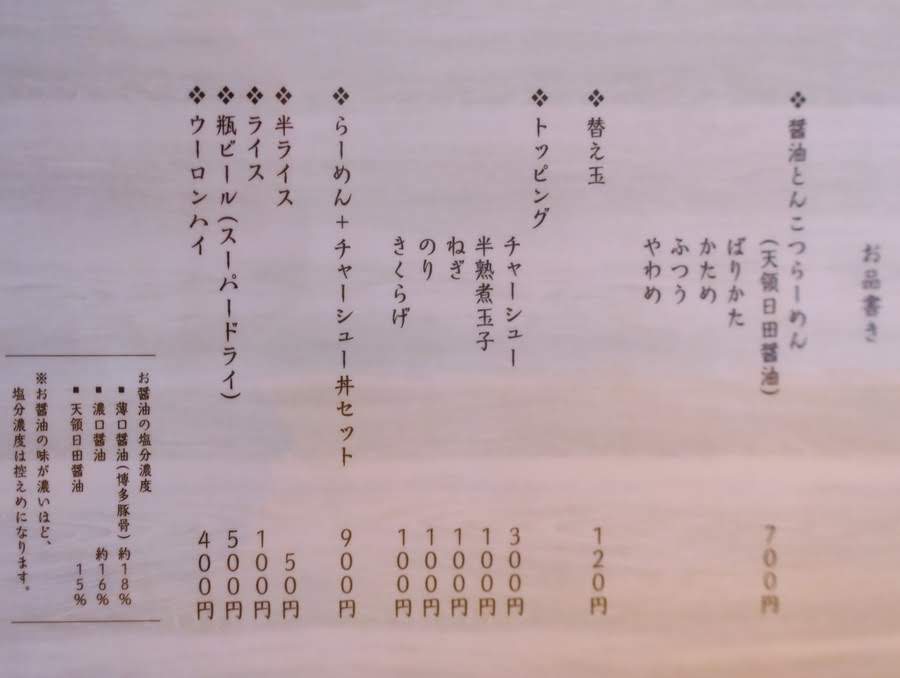 お品書き
❖醤油とんこつらーめん 700円
(天領日田醤油)
ばりかた
かため
ふつう
やわめ
❖替え玉 120円
❖トッピング
チャーシュー 300円
半熟煮玉子 100円
ねぎ 100円
のり 100円
きくらげ 100円
❖らーめん+チャーシュー丼セット 900円
❖半ライス 50円
❖ライス 100円
❖瓶ビール(スーパードライ) 500円
❖ウーロンハイ 400円
お醤油の塩分濃度
■薄口醤油(博多豚骨) 約18%
■濃口醤油 約16%
■天領日田醤油 15%
※お醤油の味が濃いほど、
塩分濃度は控えめになります。